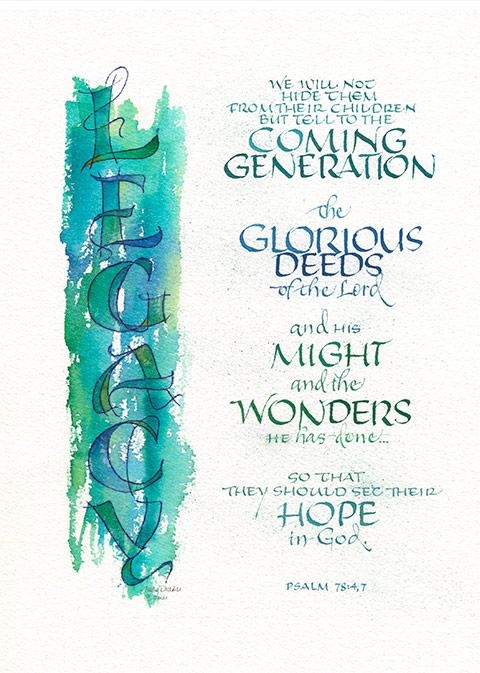 LEGACY
WE WILL NOT
HIDE THEM
FROM THEIR CHILDREN
BUT TELL TO THE
COMING
GENERATION
the
GLORIOUS
DEEDS
of the Lord
and HIS
MIGHT
and the
WONDERS
HE has done...
SO THAT
THEY SHOULD SET THEIR
HOPE
in God.
PSALM 78:4,7